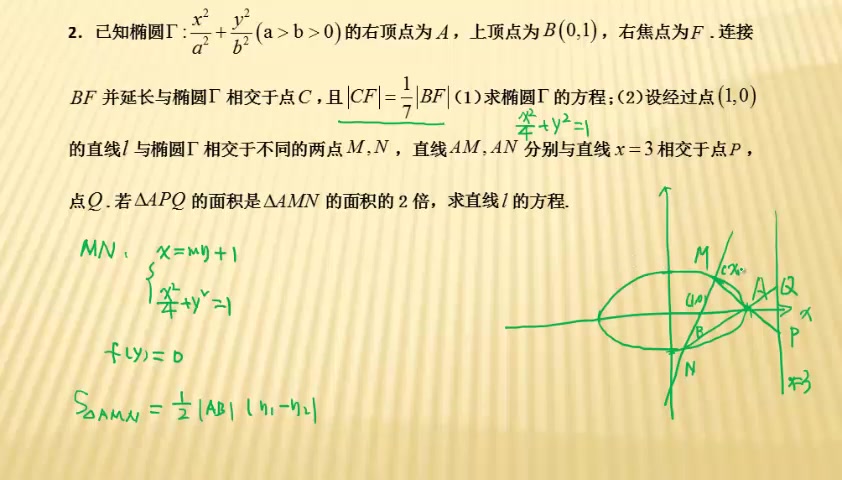 2. 已知椭圆Γ:x²/a²+y²/b²(a>b>0)的右顶点为A，上顶点为B(0,1)，右焦点为F.连接
BF并延长与椭圆Γ相交于点C,且|CF|=1/7|BF|(1)求椭圆Γ的方程;(2)设经过点(1,0)
x²/4+y²=1
的直线l与椭圆Γ相交于不同的两点M,N，直线AM,AN分别与直线x=3相交于点P，
点Q.若ΔAPQ的面积是ΔAMN的面积的2倍，求直线l的方程.
MN: x=my+1
x²/4+y²=1
f(y)=0
S△AMN=1/2|AB||y₁-y₂|
M
A
Q
(1,0)
x
B
P
N
x=3